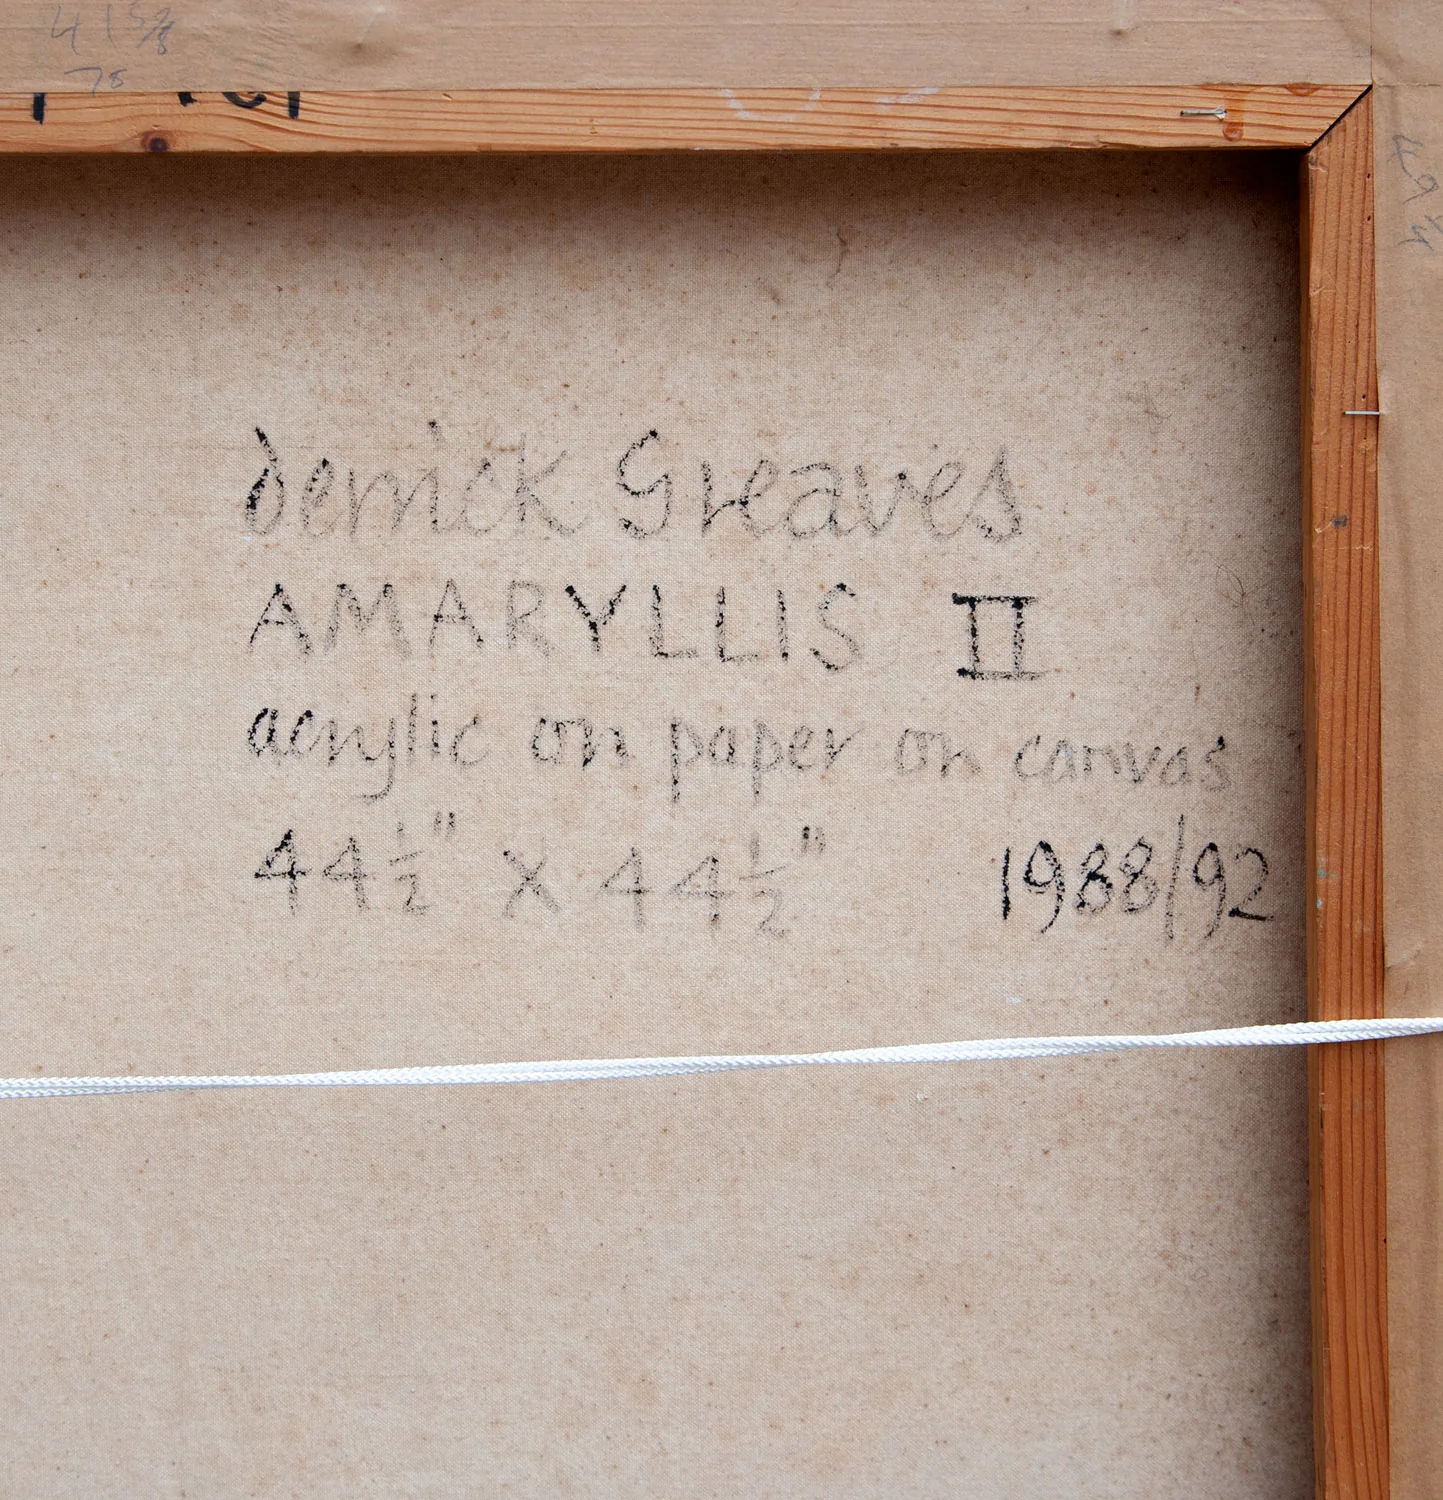 derrick Greaves
AMARYLLIS II
acrylic on paper on canvas
44½" X 44½" 1988/92